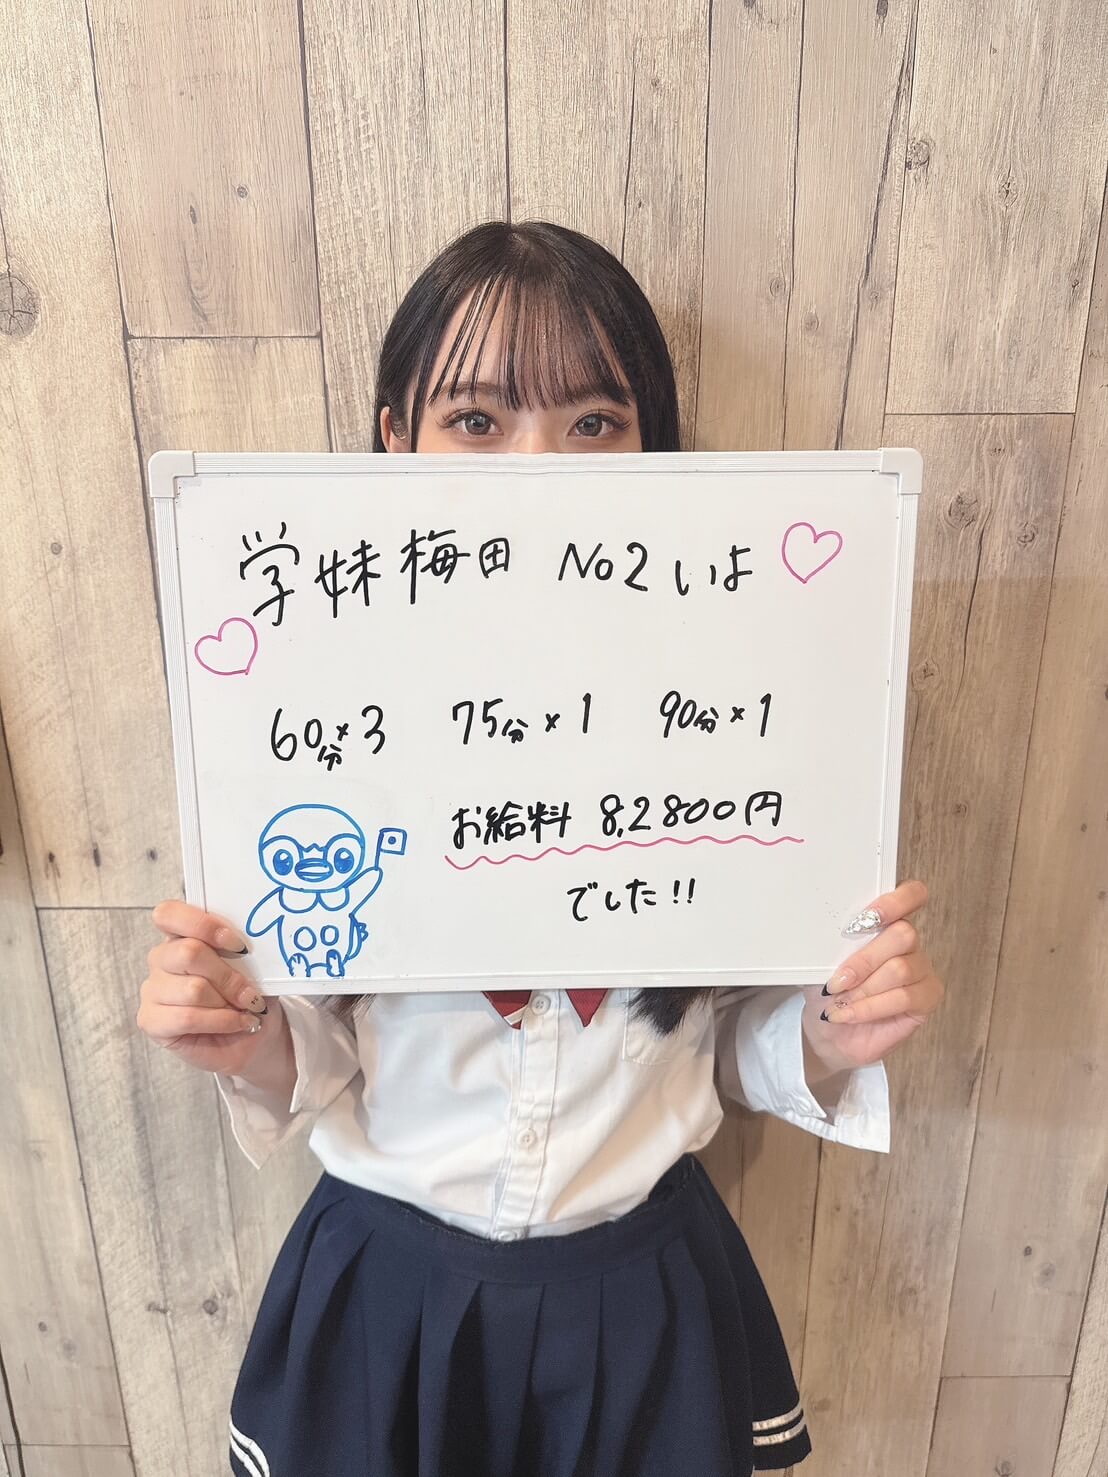 学妹梅田 No2 いよ
60分×3 75分×1 90分×1
お給料 8,2800円
でした!!